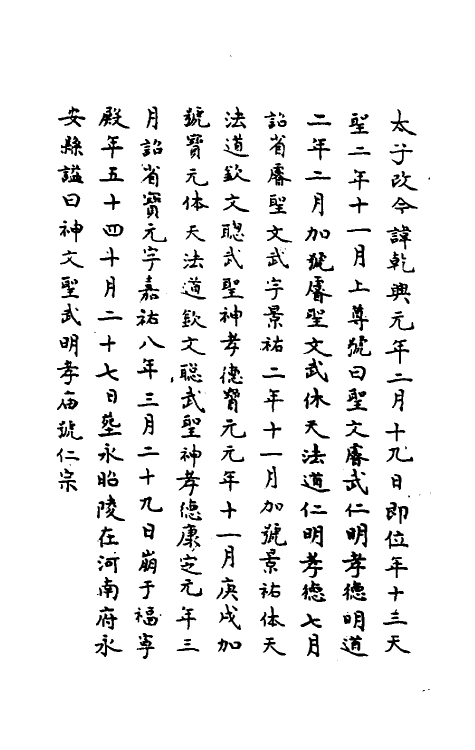 太子改今諱乾興元年二月十九日即位年十三天
聖二年十一月上尊號曰聖文睿武仁明孝德明道
二年二月加號睿聖文武休天法道仁明孝德七月
詔省睿聖文武字景祐二年十一月加號景祐体天
法道欽文聰武聖神孝德寶元元年十一月庚戌加
號寶元体天法道欽文聰武聖神孝德康定元年三
月詔省寶元字嘉祐八年三月二十九日崩于福寧
殿年五十四十月二十七日塟永昭陵在河南府永
安縣諡曰神文聖武明孝庙號仁宗